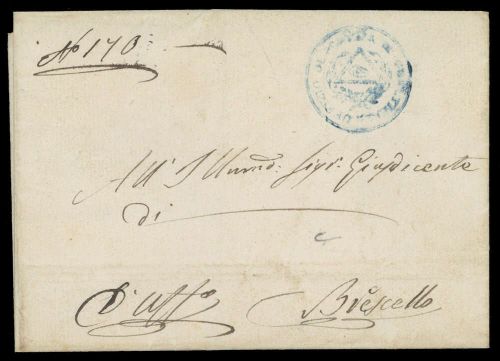 No 170
All' Illmo: Sigr: Giusdicente
di
D'uffo Brescello